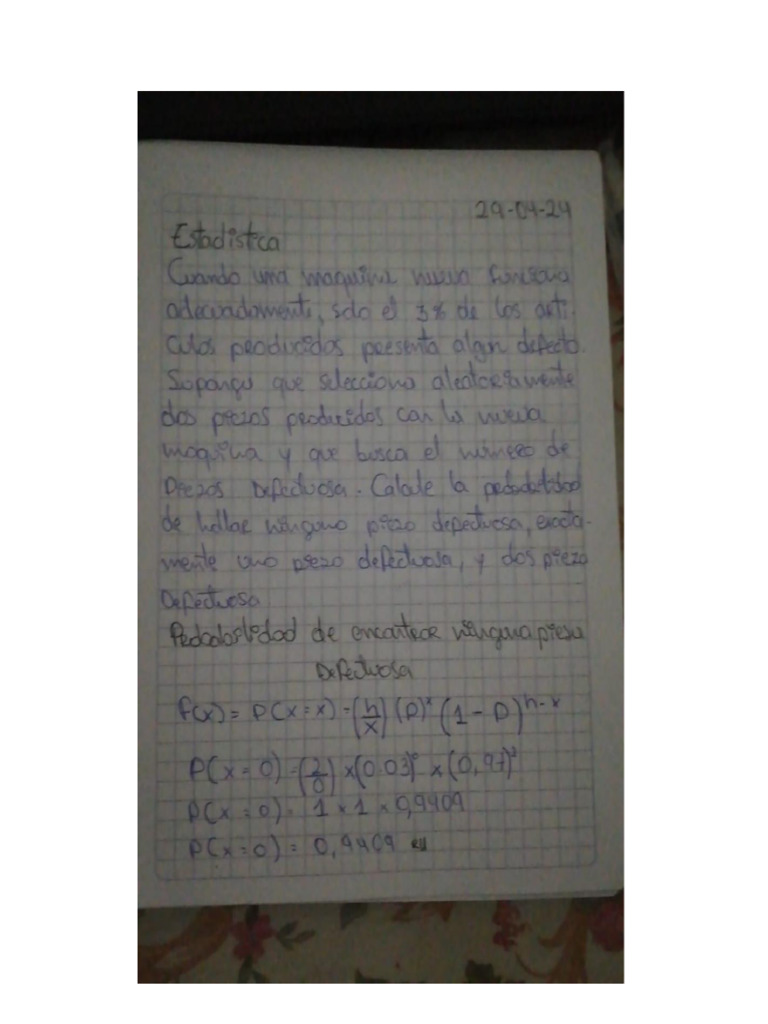 29-04-24
Estadistica
Cuando una maquina nueva funciona
adecuadamente, solo el 3% de los arti-
culos producidos presenta algun defecto.
Supongu que selecciona aleatoriamente
dos piezas producidos con la nueva
maquina y que busca el número de
Piezas Defectuosa. Calcule la probabilidad
de hallar ninguna pieza defectuosa, exacta-
mente una pieza defectuosa, y dos pieza
Defectuosa
Probabilidad de encontrar ninguna pieza
Defectuosa
f(x) = P(x = x) = (n/x) (p)^x (1 - p)^n-x
P(x = 0) = (2/0) x (0.03)^0 x (0,97)^2
P(x = 0) = 1 x 1 x 0,9409
P(x = 0) = 0,9409